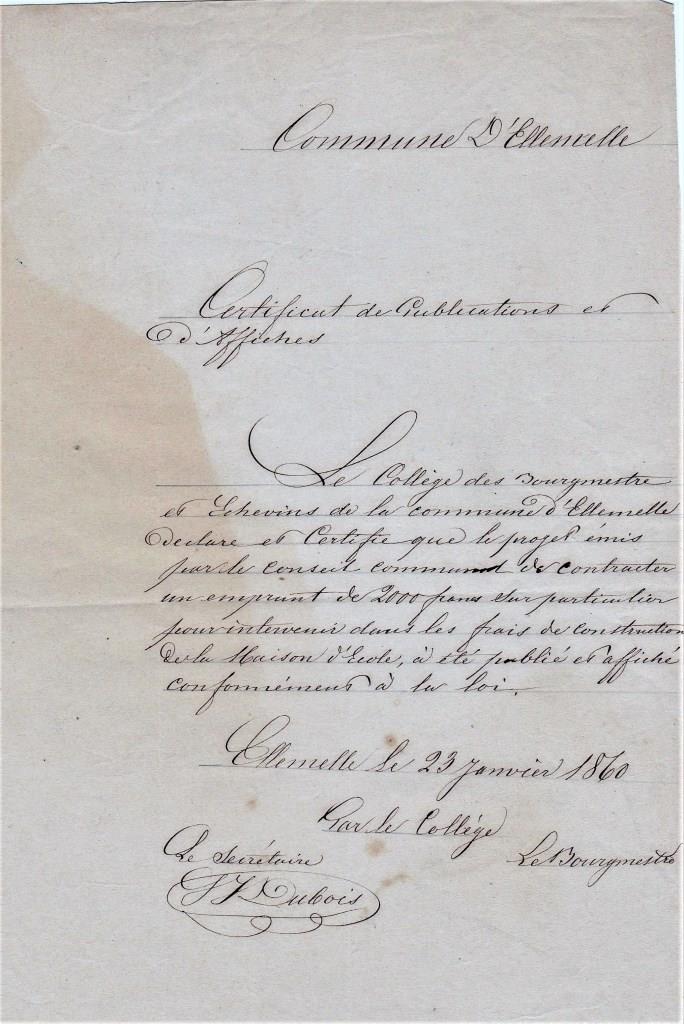 Commune D'Ellemelle
Certificat de Publications et
d'Affiches
Le Collège des Bourgmestre
et Echevins de la commune d'Ellemelle
Déclare et Certifie que le projet émis
par le conseil communal de contracter
un emprunt de 2000 francs sur particulier
pour intervenir dans les frais de construction
de la Maison d'Ecole, à été publié et affiché
conformément à la loi.
Ellemelle le 23 Janvier 1860
Par le Collège
Le Secrétaire Le Bourgmestre
Dubois